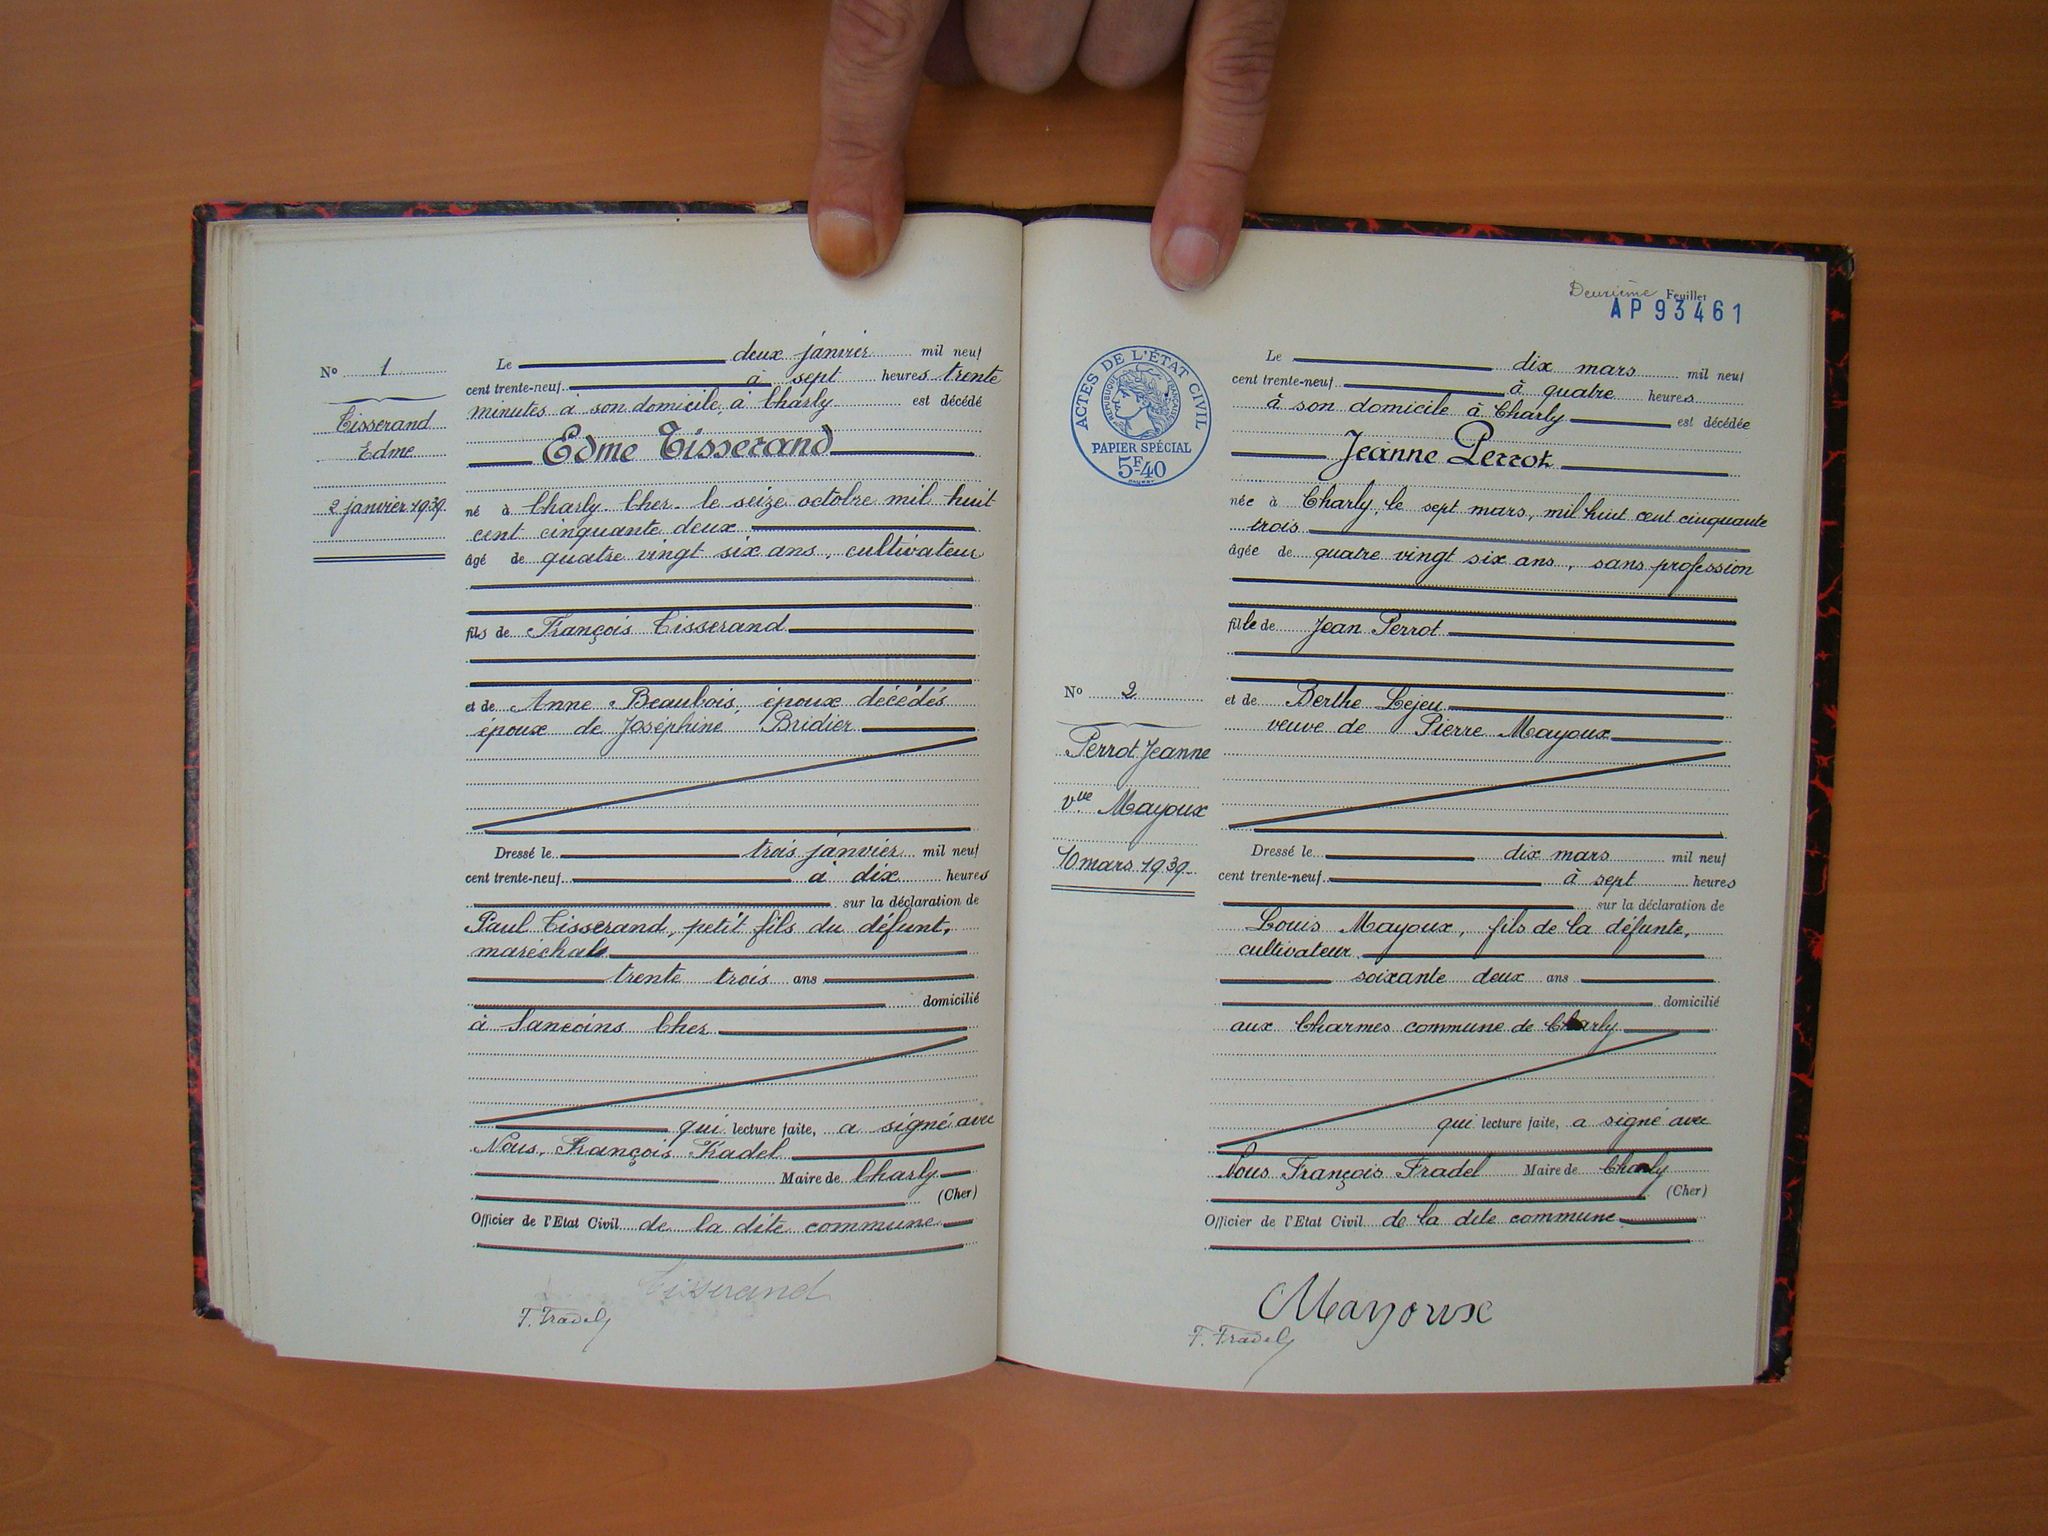 Nº 1
Tisserand
Edme
2 janvier 1939
Le deux janvier mil neuf
cent trente-neuf à sept heures trente
minutes à son domicile, à Charly est décédé
Edme Tisserand
né à Charly Cher. le seize octobre mil huit
cent cinquante deux
âgé de quatre vingt six ans, cultivateur
fils de François Tisserand
et de Anne Beaubois, époux décédés
époux de Joséphine Bridier
Dressé le trois janvier mil neuf
cent trente-neuf à dix heures
sur la déclaration de
Paul Tisserand, petit fils du défunt,
maréchal
trente trois ans
domicilié
à Sancoins Cher
qui lecture faite, a signé avec
Nous, François Fradel
Maire de Charly
(Cher)
Officier de l'Etat Civil de la dite commune
Tisserand
F. Fradel
Deuxième Feuillet
AP93461
ACTES DE L'ÉTAT CIVIL
RÉPUBLIQUE FRANÇAISE
PAPIER SPÉCIAL
5F40
Nº 2
Perrot Jeanne
vve Mayoux
10 mars 1939
Le dix mars mil neuf
cent trente-neuf à quatre heures
à son domicile à Charly est décédée
Jeanne Perrot
née à Charly, le sept mars, mil huit cent cinquante
trois
âgée de quatre vingt six ans, sans profession
fille de Jean Perrot
et de Berthe Lejeu
veuve de Pierre Mayoux
Dressé le dix mars mil neuf
cent trente-neuf à sept heures
sur la déclaration de
Louis Mayoux, fils de la défunte,
cultivateur
soixante deux ans
domicilié
aux Charmes commune de Charly
qui lecture faite, a signé avec
Nous François Fradel Maire de Charly
(Cher)
Officier de l'Etat Civil de la dite commune
Mayoux
F. Fradel